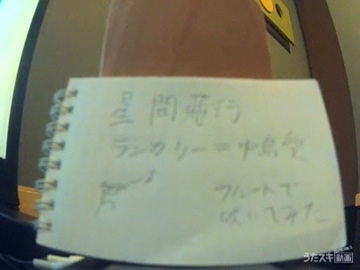 星間飛行
ランカ・リー=中島愛
フルートで
吹いてみた
うたスキ動画